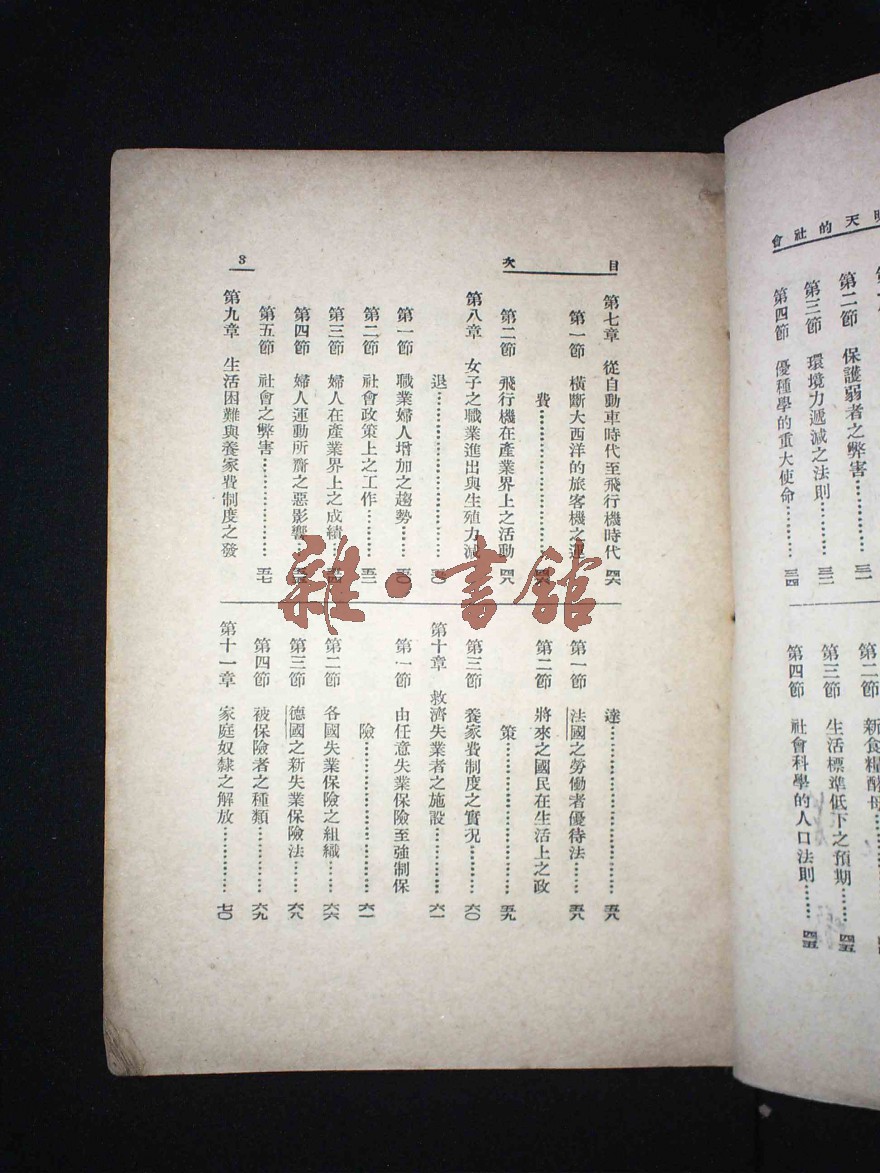 天的社會
第二節 保護弱者之弊害…………三一
第三節 環境力遞減之法則………三二
第四節 優種學的重大使命………三四
第二節 新食糧酵母
第三節 生活標準低下之預期……四五
第四節 社會科學的人口法則……四五
目次
3
第七章 從自動車時代至飛行機時代 四六
第一節 橫斷大西洋的旅客機之運
費…………………………四六
第二節 飛行機在產業界上之活動 四八
第八章 女子之職業進出與生殖力減
退…………………………五〇
第一節 職業婦人增加之趨勢……五〇
第二節 社會政策上之工作………五二
第三節 婦人在產業界上之成績…五四
第四節 婦人運動所齎之惡影響
第五節 社會之弊害………………五七
第九章 生活困難與養家費制度之發
達…………………………五八
第一節 法國之勞働者優待法……五八
第二節 將來之國民在生活上之政
策…………………………五九
第三節 養家費制度之實況………六〇
第十章 救濟失業者之施設…………六一
第一節 由任意失業保險至強制保
險…………………………六一
第二節 各國失業保險之組織……六六
第三節 德國之新失業保險法……六八
第四節 被保險者之種類…………六九
第十一章 家庭奴隸之解放…………七〇
雜·書館